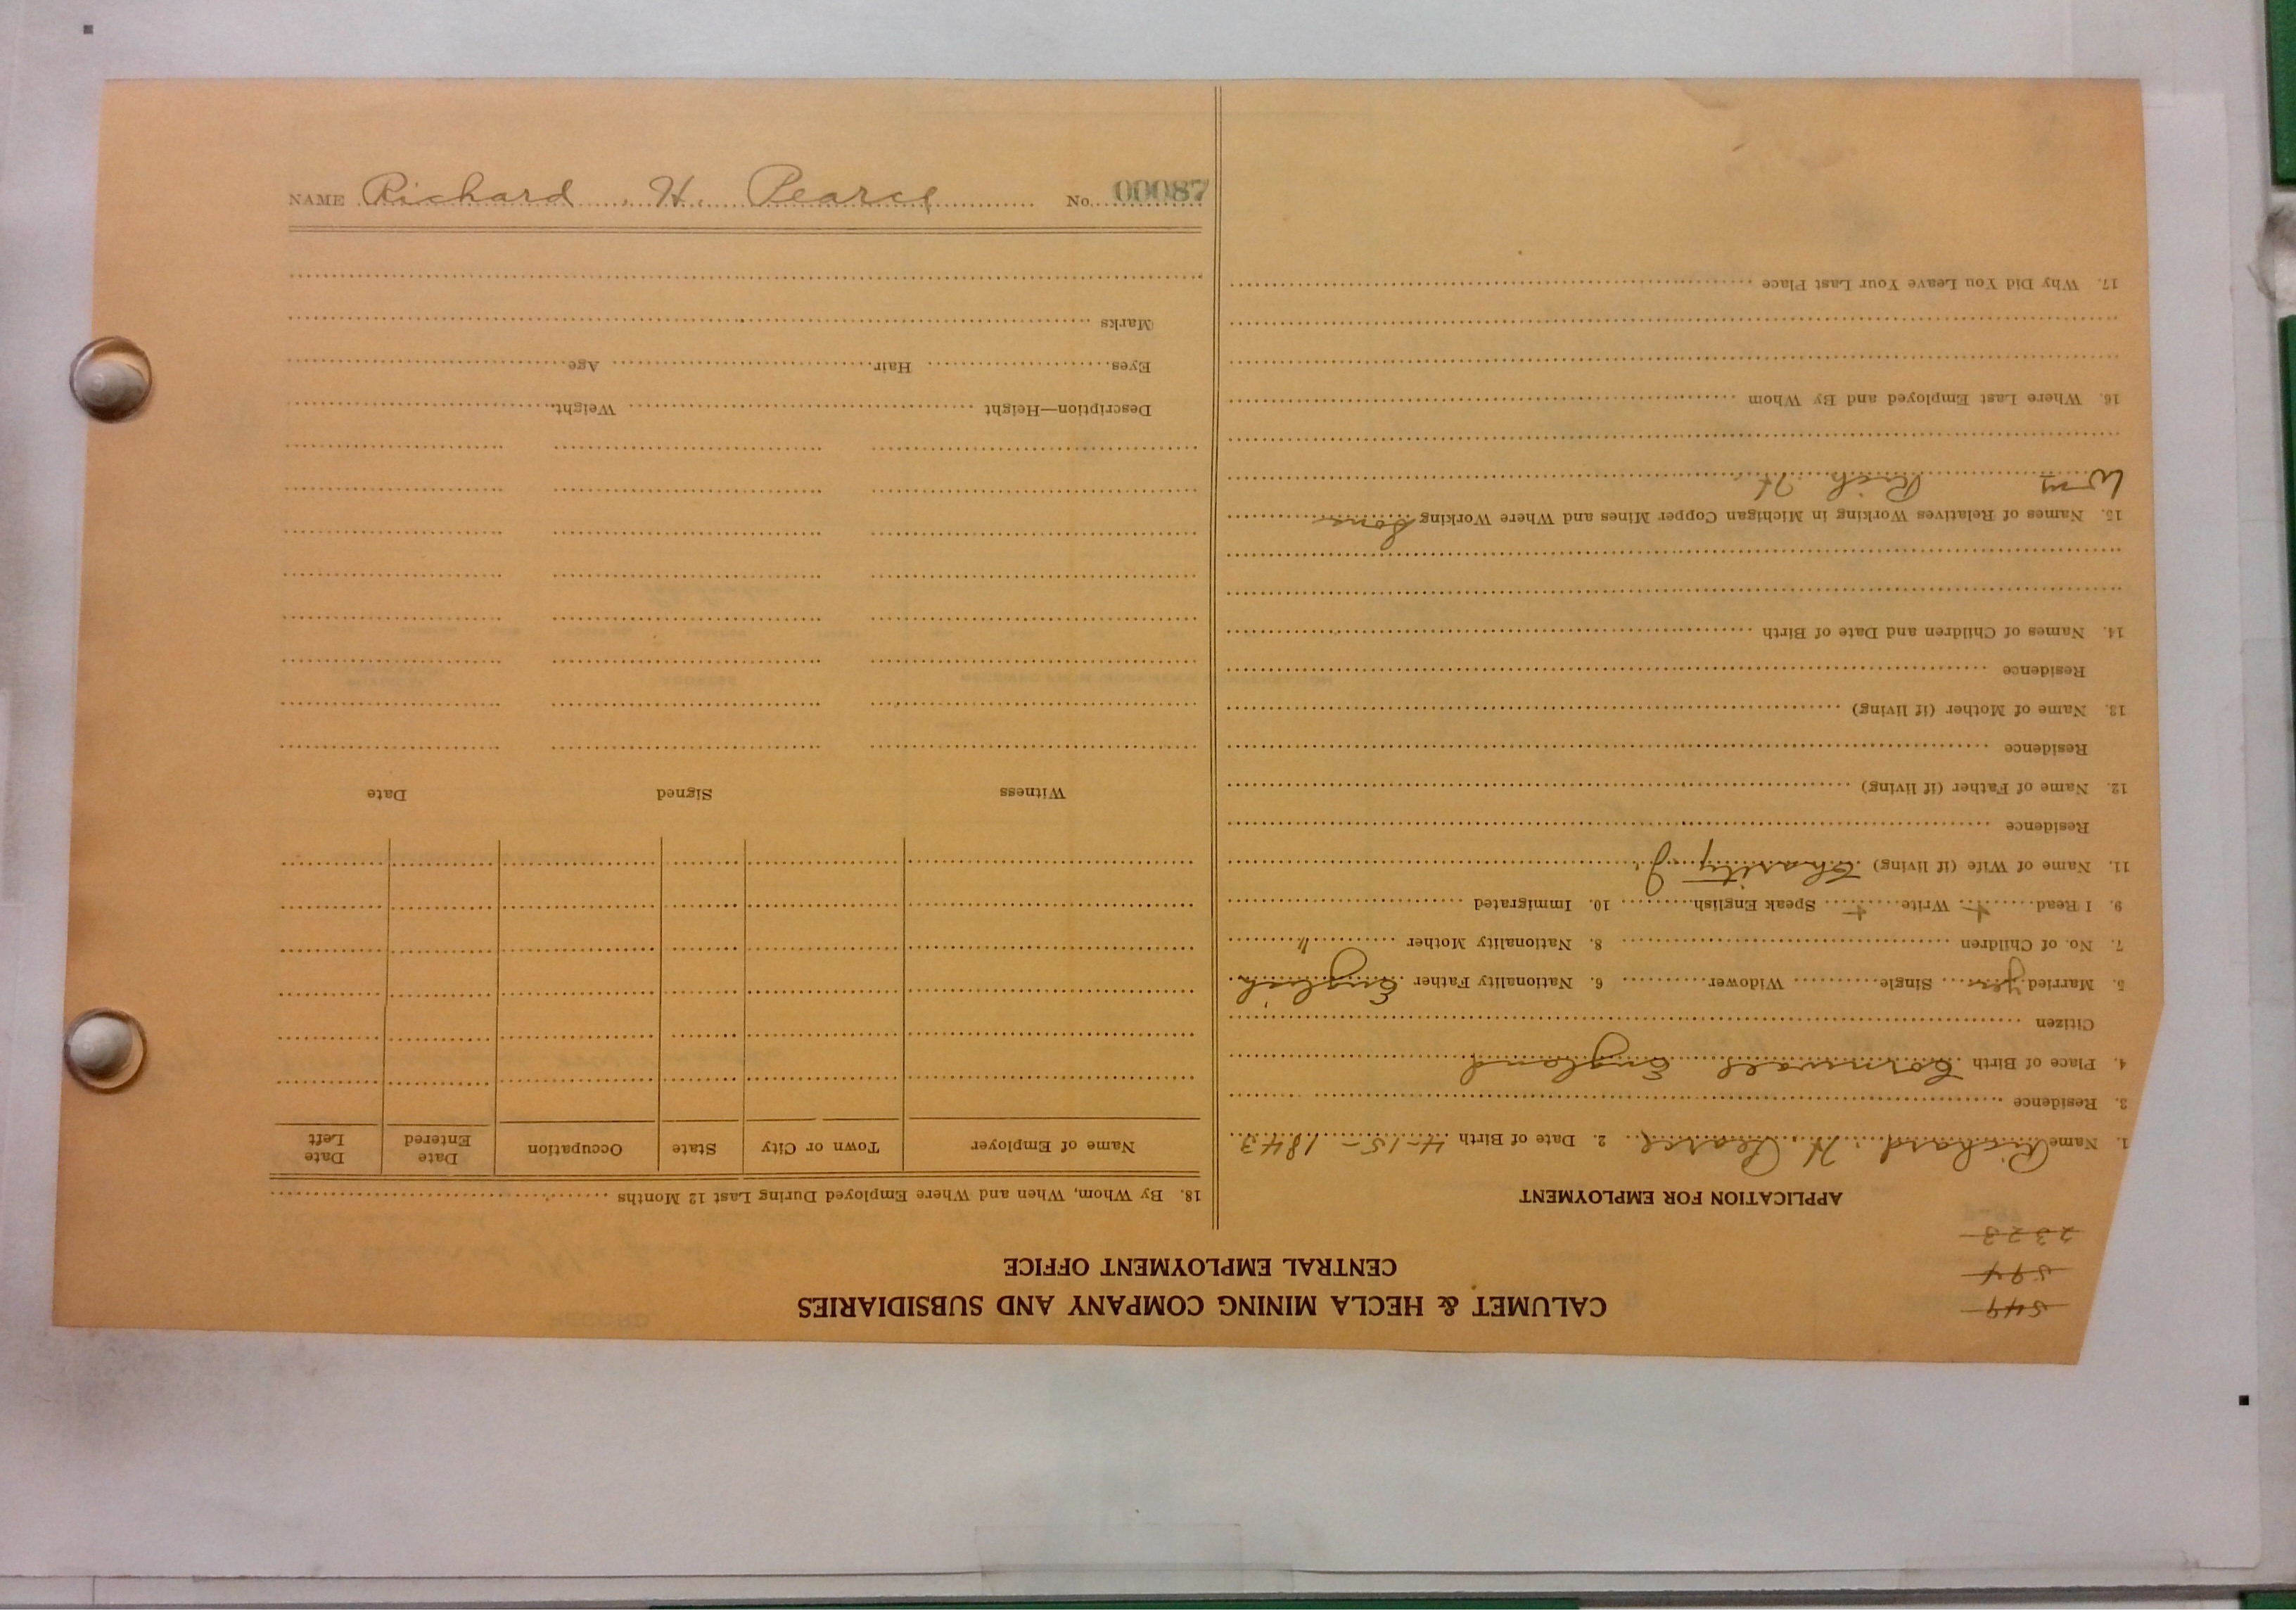 NAME Richard H. Pearce No. 00087
CALUMET & HECLA MINING COMPANY AND SUBSIDIARIES
CENTRAL EMPLOYMENT OFFICE
549
594
2323
APPLICATION FOR EMPLOYMENT
1. Name Richard H. Pearce 2. Date of Birth 4-15-1843
3. Residence
4. Place of Birth Cornwall England
Citizen
5. Married yes Single Widower 6. Nationality Father English
7. No. of Children 8. Nationality Mother "
9. I Read + Write + Speak English 10. Immigrated
11. Name of Wife (if living) Charity J.
Residence
12. Name of Father (if living)
Residence
13. Name of Mother (if living)
Residence
14. Names of Children and Date of Birth
15. Names of Relatives Working in Michigan Copper Mines and Where Working Sons
Wm Rich H.
16. Where Last Employed and By Whom
17. Why Did You Leave Your Last Place
18. By Whom, When and Where Employed During Last 12 Months
Name of Employer Town or City State Occupation Date Entered Date Left
Witness Signed Date
Description—Height Weight
Eyes Hair Age
Marks